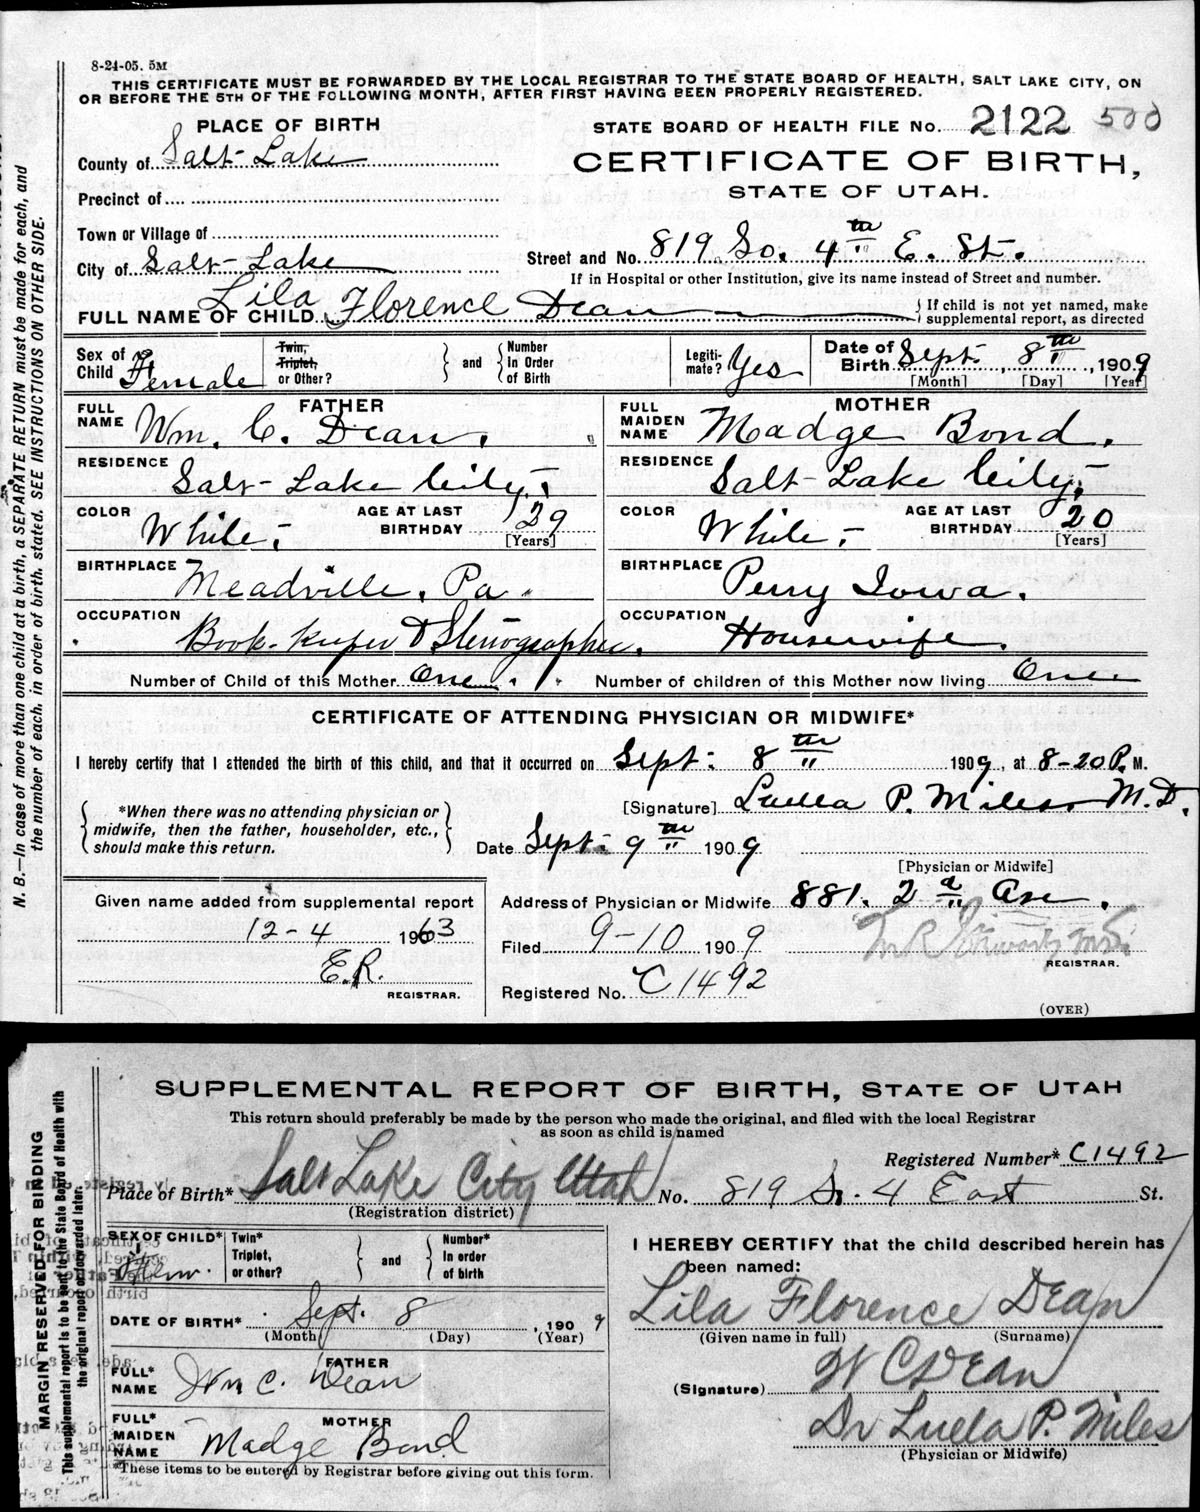 8-24-05. 5M
THIS CERTIFICATE MUST BE FORWARDED BY THE LOCAL REGISTRAR TO THE STATE BOARD OF HEALTH, SALT LAKE CITY, ON
OR BEFORE THE 5TH OF THE FOLLOWING MONTH, AFTER FIRST HAVING BEEN PROPERLY REGISTERED.
PLACE OF BIRTH
STATE BOARD OF HEALTH FILE No. 2122 500
County of Salt Lake
CERTIFICATE OF BIRTH,
STATE OF UTAH.
Precinct of
Town or Village of
City of Salt Lake
Street and No. 819 So. 4th E. St.
If in Hospital or other Institution, give its name instead of Street and number.
FULL NAME OF CHILD Lila Florence Dean
If child is not yet named, make
supplemental report, as directed
Sex of Child Female
Twin, Triplet, or Other?
and
Number In Order of Birth
Legiti-mate? Yes
Date of Birth Sept. 8th, 1909
[Month] [Day] [Year]
FATHER
FULL NAME Wm. C. Dean.
RESIDENCE Salt Lake City.
COLOR White.
AGE AT LAST BIRTHDAY 29
[Years]
BIRTHPLACE Meadville, Pa.
OCCUPATION Book-keeper & Stenographer.
MOTHER
FULL MAIDEN NAME Madge Bond.
RESIDENCE Salt Lake City.
COLOR White.
AGE AT LAST BIRTHDAY 20
[Years]
BIRTHPLACE Perry Iowa.
OCCUPATION Housewife.
Number of Child of this Mother One. Number of children of this Mother now living One
CERTIFICATE OF ATTENDING PHYSICIAN OR MIDWIFE*
I hereby certify that I attended the birth of this child, and that it occurred on Sept: 8th 1909, at 8-20 P. M.
*When there was no attending physician or
midwife, then the father, householder, etc.,
should make this return.
[Signature] Luella P. Miles M.D.
Date Sept: 9th 1909
[Physician or Midwife]
Given name added from supplemental report
12-4 1963
E.R.
REGISTRAR.
Address of Physician or Midwife 881. 2d Ave.
Filed 9-10 1909
REGISTRAR.
Registered No. C1492
(OVER)
N. B.—In case of more than one child at a birth, a SEPARATE RETURN must be made for each, and
the number of each, in order of birth, stated. SEE INSTRUCTIONS ON OTHER SIDE.
SUPPLEMENTAL REPORT OF BIRTH, STATE OF UTAH
This return should preferably be made by the person who made the original, and filed with the local Registrar
as soon as child is named
Registered Number* C1492
Place of Birth* Salt Lake City Utah No. 819 So. 4 East St.
(Registration district)
SEX OF CHILD* Fem.
Twin* Triplet, or other?
and
Number* In order of birth
DATE OF BIRTH* Sept. 8, 1909
(Month) (Day) (Year)
FATHER
FULL* NAME Wm C. Dean
MOTHER
FULL* MAIDEN NAME Madge Bond
*These items to be entered by Registrar before giving out this form.
I HEREBY CERTIFY that the child described herein has
been named:
Lila Florence Dean
(Given name in full) (Surname)
(Signature) W C Dean
Dr Luella P. Miles
(Physician or Midwife)
MARGIN RESERVED FOR BINDING
This supplemental report is to be sent to the State Board of Health with
the original report or forwarded later.